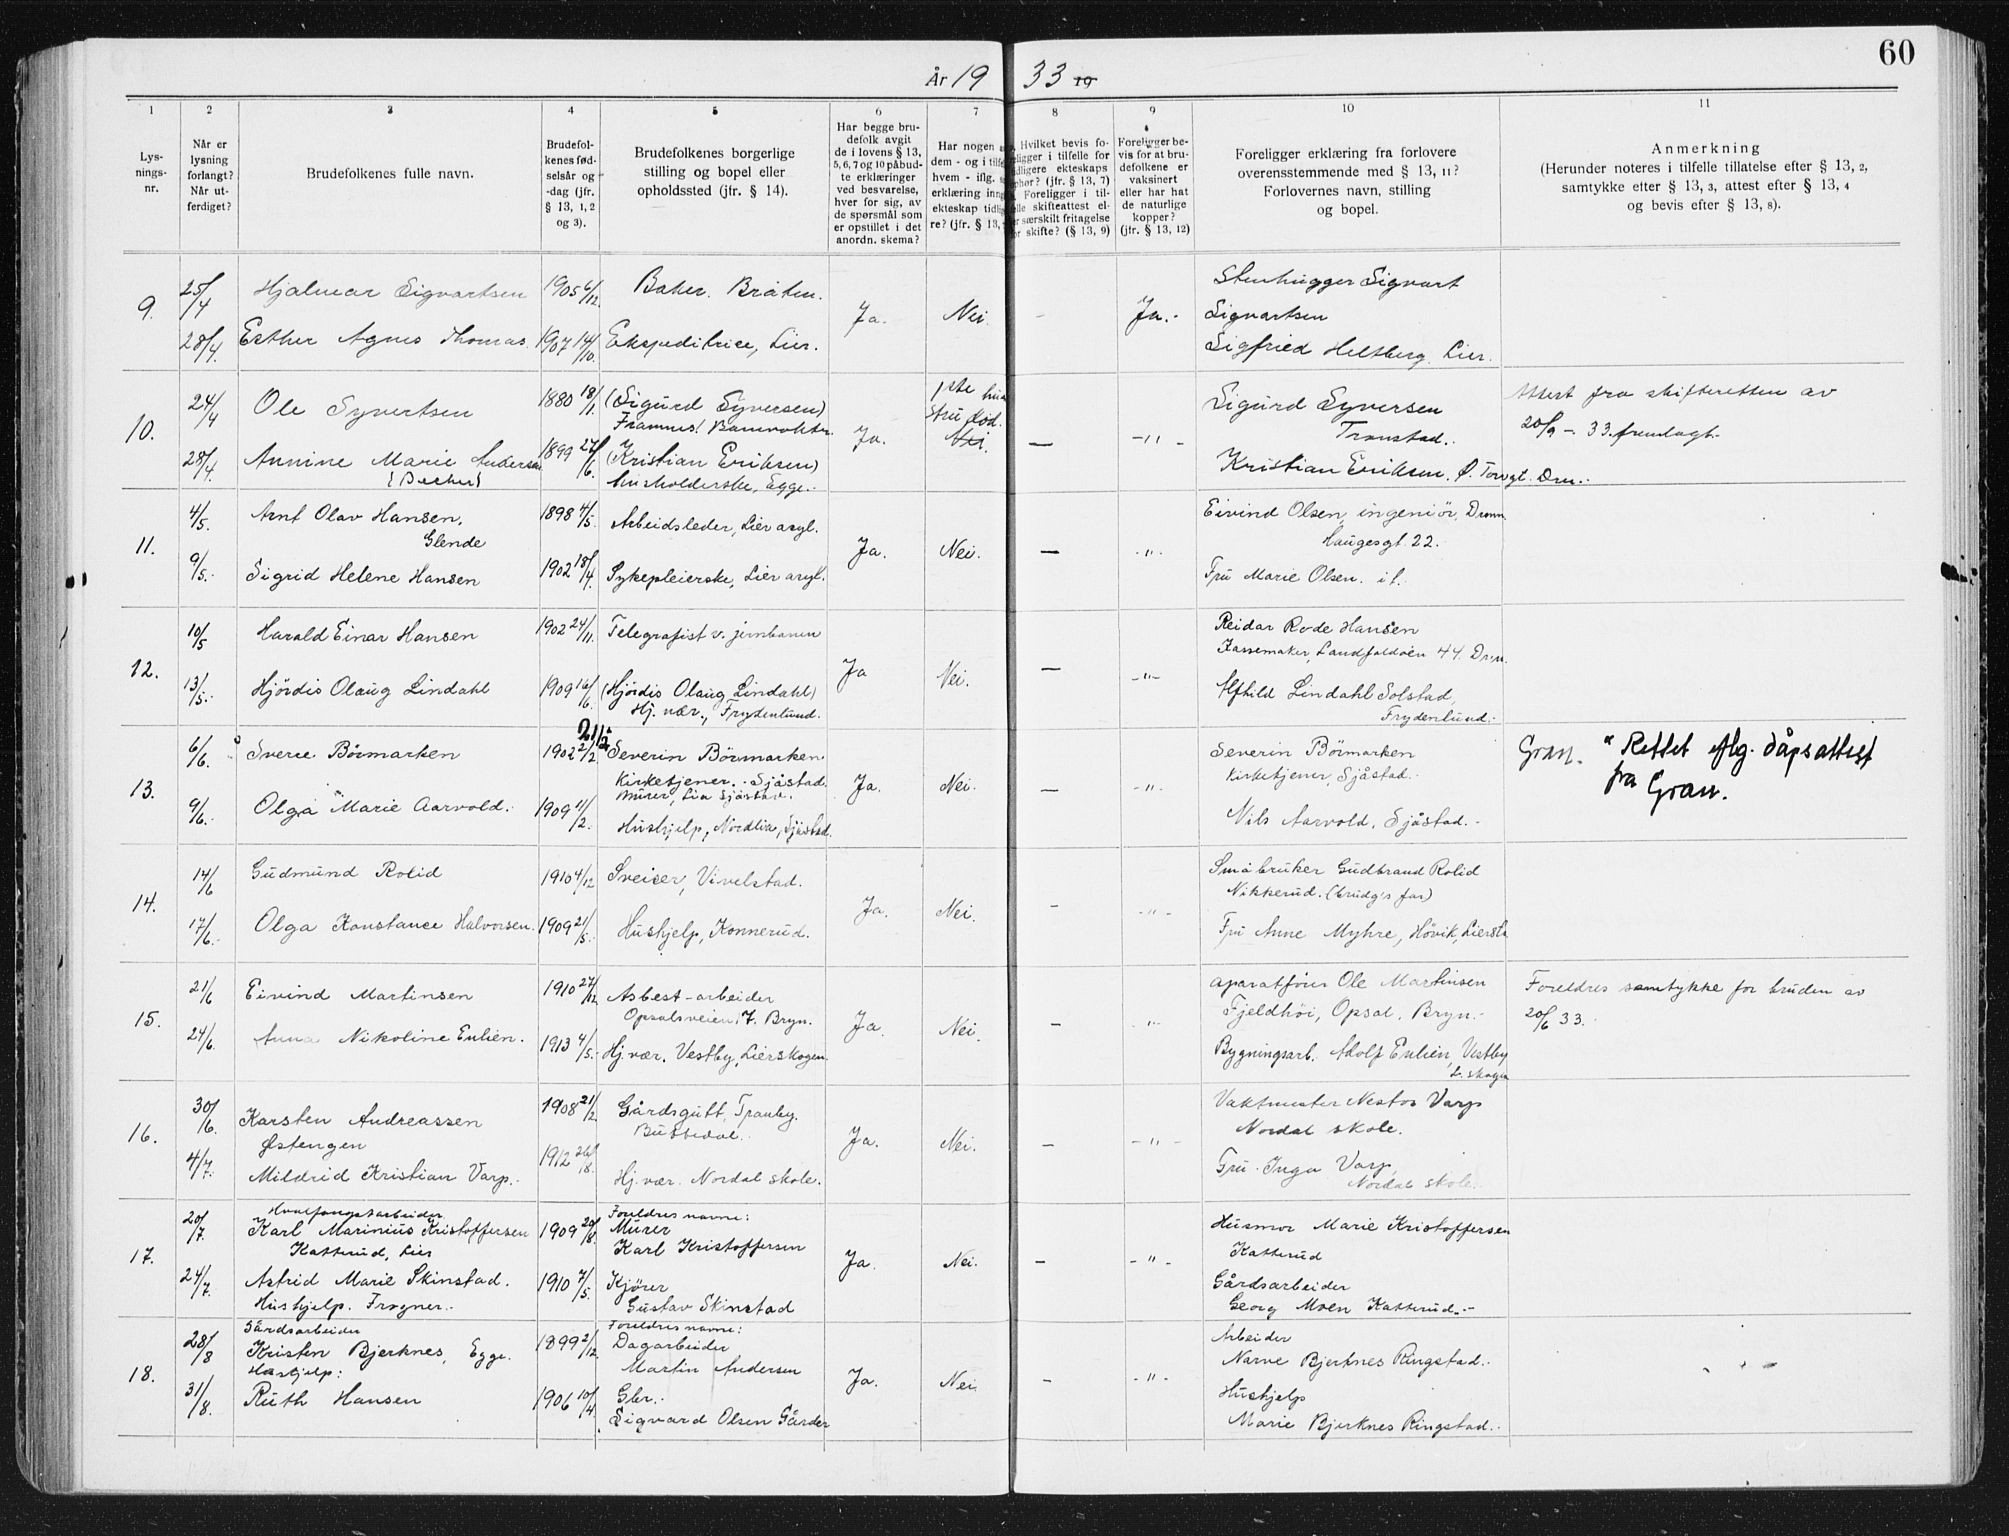 60
År 19 33 19
1 2 3 4 5 6 7 8 9 10 11
Lys-
nings-
nr.
Når er
lysning
forlangt?
Når ut-
ferdiget?
Brudefolkenes fulle navn.
Brudefol-
kenes fød-
selsår og
-dag (jfr.
§ 13, 1, 2
og 3).
Brudefolkenes borgerlige
stilling og bopel eller
opholdssted (jfr. § 14).
Har begge bru-
defolk avgit
de i lovens § 13,
5, 6, 7 og 10 påbud-
te erklæringer
ved besvarelse,
hver for sig, av
de spørsmål som
er opstillet i det
anordn. skema?
Har nogen
dem - og i tilfe
hvem - iflg.
erklæring inng
ekteskap tidlig
re? (jfr. § 13,
Hvilket bevis fo-
religger i tilfelle for
tidligere ekteskaps
ophør? (jfr. § 13, 7)
Foreligger i til-
felle skifteattest el-
er særskilt fritagelse
for skifte? (§ 13, 9)
Foreligger be-
vis for at bru-
defolkene er
vaksinert
eller har hat
de naturlige
kopper?
(jfr. § 13, 12)
Foreligger erklæring fra forlovere
overensstemmende med § 13, 11?
Forlovernes navn, stilling
og bopel.
Anmerkning
(Herunder noteres i tilfelle tillatelse efter § 13, 2,
samtykke efter § 13, 3, attest efter § 13, 4
og bevis efter § 13, 8).
9. 25/4 Hjalmar Sigvartsen 1905 6/12. Baker. Bråten. Ja. Nei. - Ja.- Stenhugger Sigvart
Sigvartsen
28/4. Esther Agnes Thomas. 1907 14/10. Ekspeditrice, Lier. Sigfried Heltberg, Lier.
10. 24/4 Ole Syvertsen 1880 18/1. (Sigurd Syversen)
Framnes! Banevokter. Ja. 1ste hu
stru død.
Nei. — -"- Sigurd Syversen
Transtad. Attest fra skifteretten av
20/9 - 33 fremlagt.
28/4. Annine Marie Andersen
(Becher) 1899 27/6. (Kristian Eriksen)
husholderske, Egge. Kristian Eriksen. Ø. Torvgt. Drm.
11. 4/5. Arnt Olav Hansen,
Glende 1898 4/5. Arbeidsleder, Lier asyl. Ja. Nei. — -"- Eivind Olsen, ingeniør, Dramm.
Haugesgt. 22.
9/5. Sigrid Helene Hansen 1902 18/4. Sykepleierske, Lier asyl. Fru Marie Olsen. i l.
12. 10/5 Harald Einar Hansen 1902 24/11. Telegrafist v. jernbanen Ja Nei. — -"- Reidar Rode Hansen
Kassemaker, Landfaldøen 44. Drm.
13/5. Hjördis Olaug Lindahl 1909 16/6. (Hjördis Olaug Lindahl)
Hj. vær., Frydenlund. Alfhild Lindahl Solstad,
Frydenlund.
13. 6/6. Sverre Börmarken 1902 2/2 21/2 Severin Börmarken
Kirketjener. Sjåstad.
Murer, Lia Sjåstad. Ja. Nei. — -"- Severin Börmarken
Kirketjener, Sjåstad. Gran. Rettet iflg. dåpsattest
fra Gran.
9/6. Olga Marie Aarvold. 1909 11/2. Hushjelp, Nordlia, Sjåstad. Nils Aarvold, Sjåstad.
14. 14/6 Gudmund Rolid 1910 4/12 Sveiser, Vivelstad. Ja. Nei. - -"- Småbruker Gudbrand Rolid
Nikkerud. (brudg's far)
17/6. Olga Konstance Halvorsen. 1909 21/5. Hushjelp, Konnerud. Fru Anne Myhre, Hövik, Lierst.
15. 21/6 Eivind Martinsen 1910 27/12. Asbest-arbeider
Opsalsveien 7. Bryn. Ja. Nei. - "- aparatförer Ole Martinsen
Fjeldhöi, Opsal, Bryn. Foreldres samtykke for bruden av
20/6 33.
24/6. Anna Nikoline Eulien. 1913 4/5. Hj.vær. Vestby, Lierskogen. Bygningsarb. Adolf Eulien, Vestby
L. skogen
16. 30/6. Karsten Andreassen
Østengen 1908 21/2. Gårdsgutt, Tranby.
Buttedal. Ja. Nei. - -"- Vaktmester Nestor Varp
Nordal skole.
4/7. Mildrid Kristian Varp. 1912 26/8. Hj.vær. Nordal skole. Fru Inga Varp,
Nordal skole.
17. 20/7. Hvalfangstarbeider
Karl Marinius Kristoffersen
Katterud, Lier 1909 20/8. Foreldres navne:
Murer
Karl Kristoffersen Ja. Nei. - -"- Husmor Marie Kristoffersen
Katterud
24/7. Astrid Marie Skinstad.
Hushjelp. Frogner. 1910 7/5. Kjörer
Gustav Skinstad Gårdsarbeider
Georg Moen Katterud.
18. 28/8 Gårdsarbeider
Kristen Bjerknes, Egge. 1899 2/12. Foreldres navne:
Dagarbeider
Martin Andersen Ja. Nei. - -"- Arbeider
Narve Bjerknes Ringstad.
31/8. Hushjelp:
Ruth Hansen 1906 10/4. Gbr.
Sigvard Olsen Gårder Hushjelp
Marie Bjerknes Ringstad.